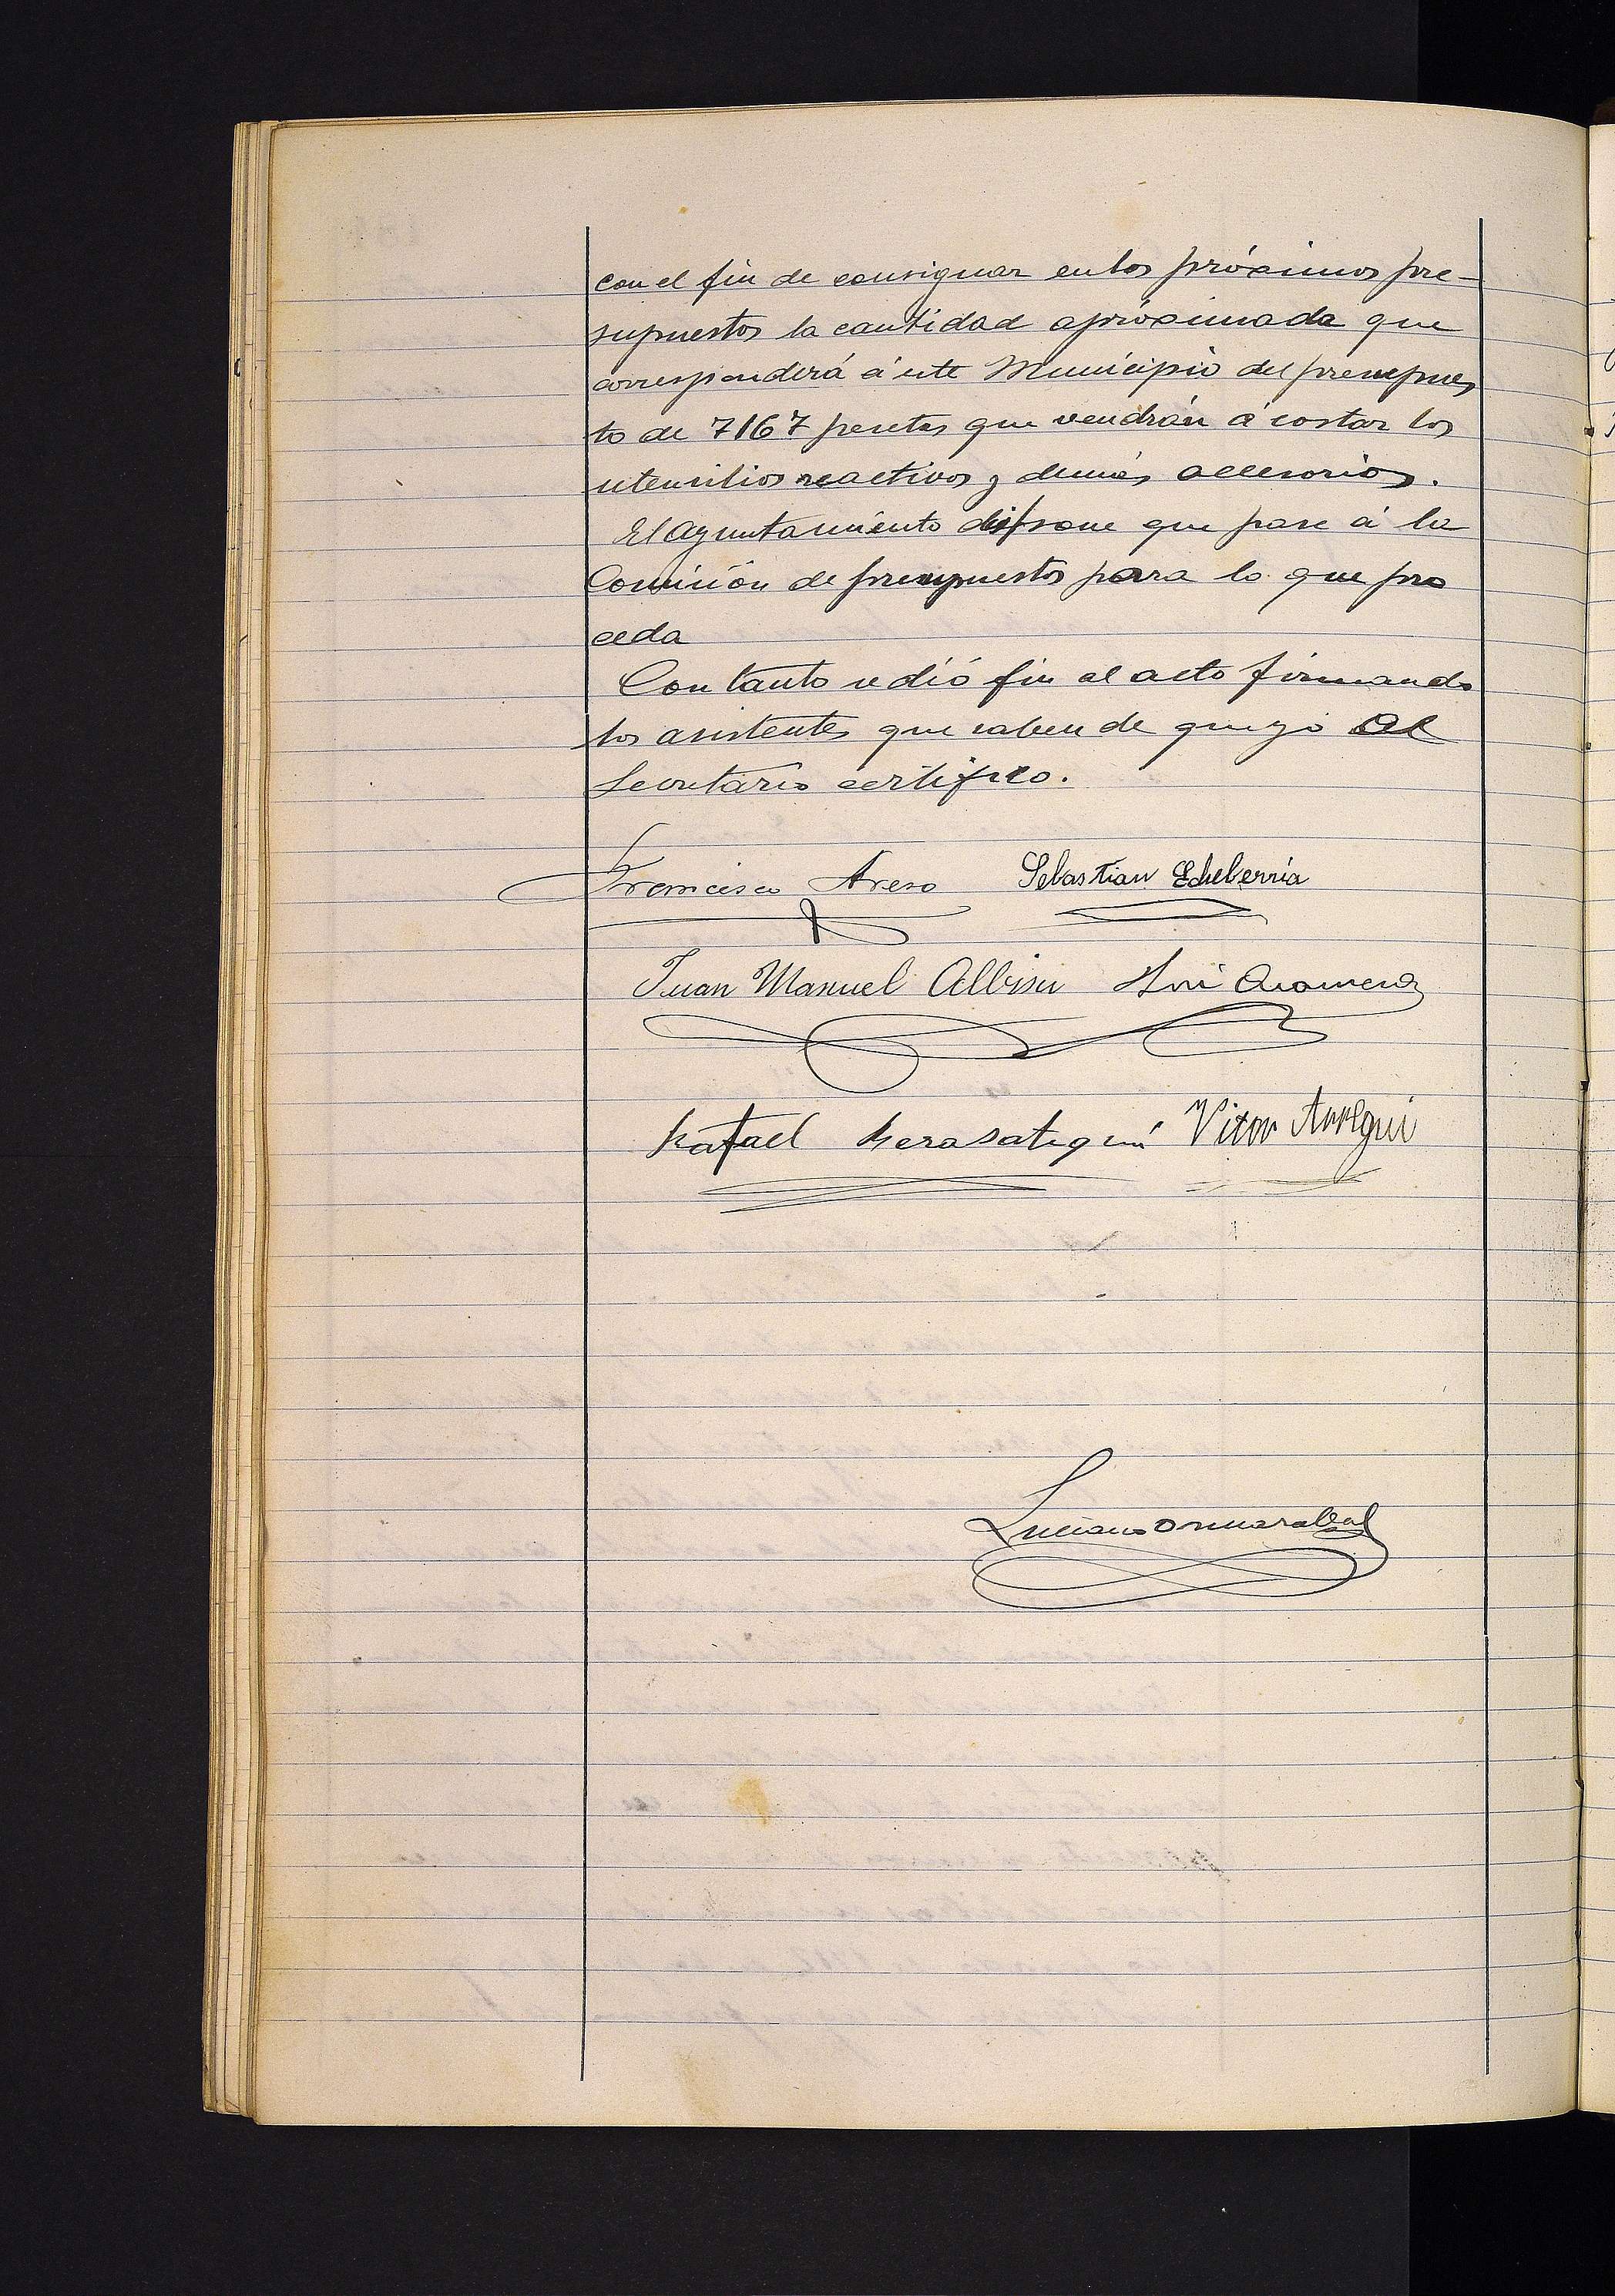 con el fin de consignar en los próximos pre-
supuestos la cantidad apróximada que
corresponderá á este Municipio del presupues
to de 7167 pesetas que vendrán á costar los
utensilios reactivos y demás accesorios.
El Ayuntamiento dispone que pase á la
Comisión de presupuestos para lo que pro
ceda
Con tanto se dió fin al acto firmando
los asistentes que saben de que yo el
Secretario certifico.
Francisco Areso Sebastian Echeberria
Juan Manuel Albisu José
Rafael Berasategui Vitor Arregui
Luciano Ormazabal